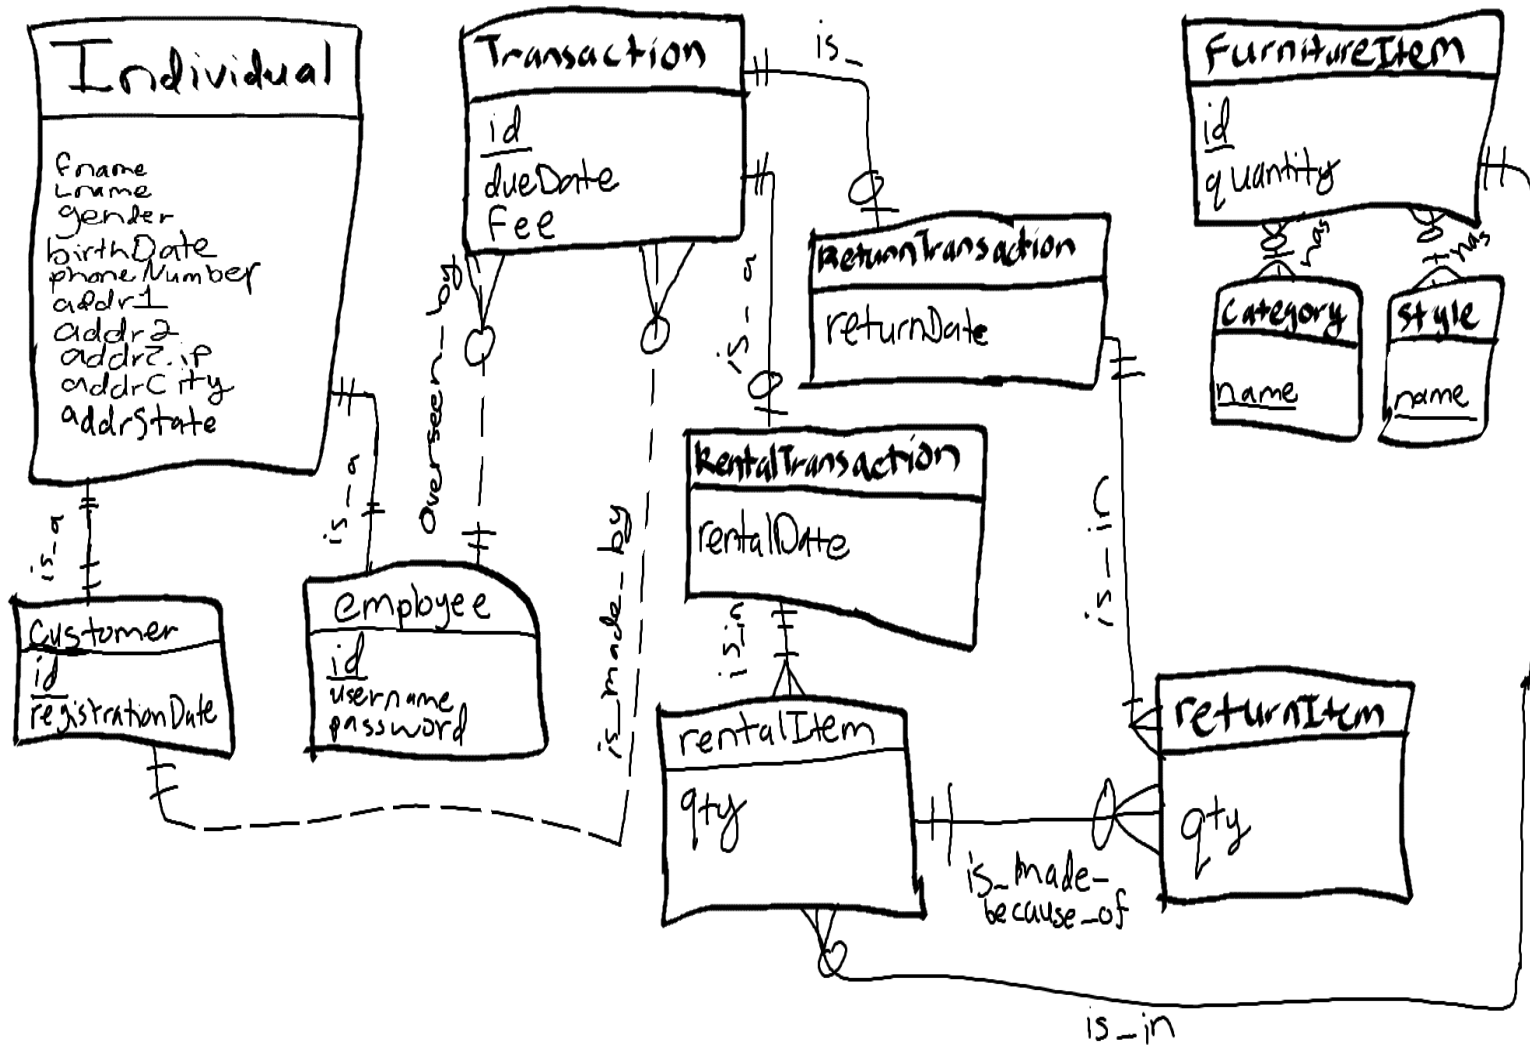 Individual
fname
Lname
gender
birthDate
phoneNumber
addr1
addr2
addrZip
addrCity
addrState
is_a
is_a
Customer
id
registrationDate
employee
id
username
password
Transaction
id
dueDate
fee
Overseen_by
is_made_by
is_
is_a
ReturnTransaction
returnDate
RentalTransaction
rentalDate
is_in
is_in
rentalItem
qty
returnItem
qty
is_made_
because_of
is_in
FurnitureItem
id
quantity
has
has
Category
name
Style
name